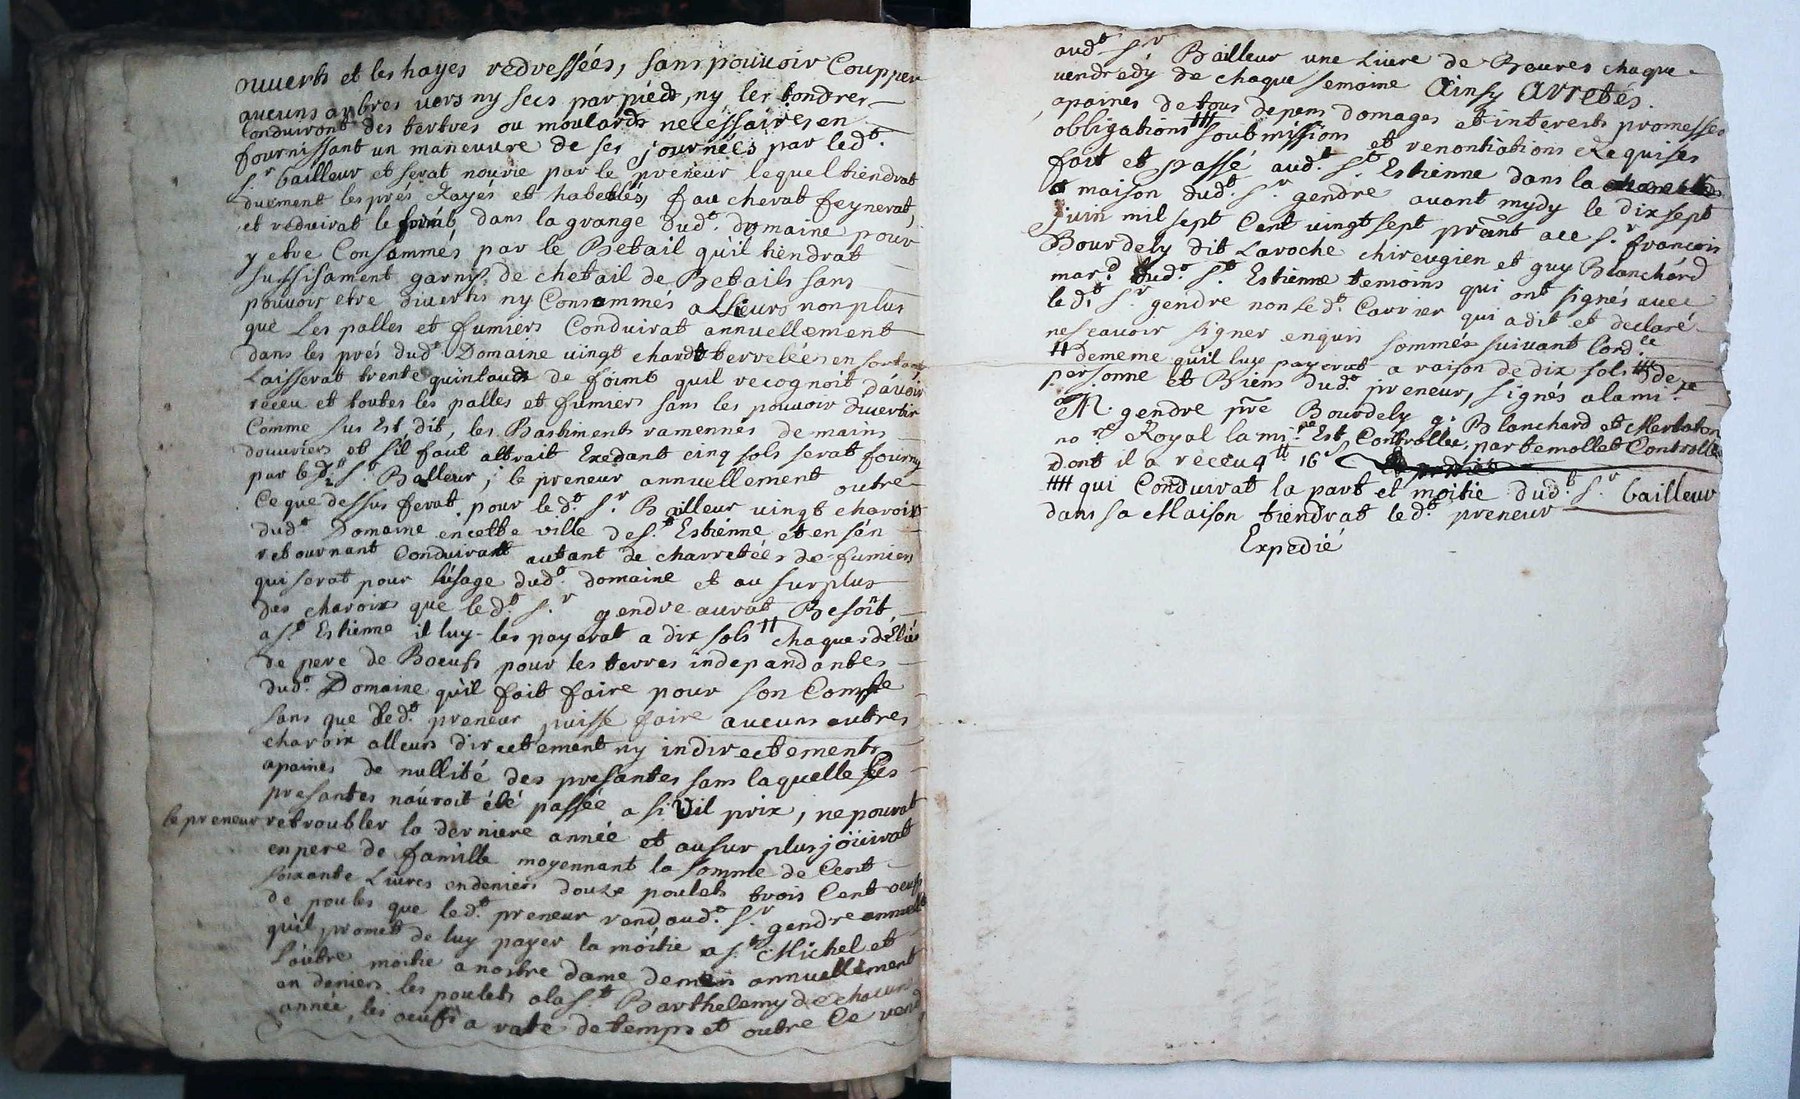 ouverts et les hayes redressées, sans pouvoir Coupper
aucuns arbres vers ny secs par pieds, ny les tondrer
Conduiront des tertres ou moulards necessaires en
fournissant un maneuvre de ses journées par led.t
S.r bailleur et serat nourie par le preneur lequel tiendrat
duement les prés Rayés et habellés, faucherat feynerat,
et reduirat le foint dans la grange dud.t domaine pour
y etre Consommés par le Betail qu'il tiendrat
suffisament garnis de chetail de Betails sans
pouvoir etre divertis ny Consommés allieurs non plus
que Les palles et fumiers Conduirat annuellement
dans les prés dud.t Domaine vingt chard terrelées en sortant
Laisserat trente quintaud de foint quil recognoit d'avoir
receu et toutes les palles et fumiers sans les pouvoir divertir
Comme sus Est dit, les Bastiments ramennés de mains
douvriers et s'il faut attrait Exedant cinq sols serat fourny
par le d.t S.r Balleur; le preneur annuellement outre
Ce que dessus ferat pour led.t S.r Bailleur vingt charoix
dud.t Domaine en cette ville de S.t Estienne et en s'en
retournant Conduirant autant de charretées de fumiers
qui serat pour lusage dud.t domaine et au surplus
des charoixs que led.t S.r gendre aurat Besoit
a S.t Estienne il luy les payerat a dix sols tt chaques
de pere de Boeufs pour les terres independantes
dud.t Domaine qu'il fait faire pour son Compte
sans que led.t preneur puisse faire aucuns autres
charoix alleurs directement ny indirectements
apaines de nullité des presantes sans laquelle les
presantes n'auroit été passée a si vil prix, ne pourat
le preneur retroubler la derniere année et au sur plus joüirat
en pere de famille moyennant la somme de Cent
soixante Livres en deniers douze poulets trois Cent oeufs
de poules que led.t preneur rend aud.t S.r gendre annuell
qu'il promet de luy payer la moitie a S.t Michel et
L'autre moitie a nostre dame de mars annuellement
en deniers les poulets a la S.t Barthelemy de chacune
année, les oeufs a rate de temps et outre Ce vend
aud.t S.r Bailleur une Livre de Beures chaque
vendredy de chaque semaine Ainsy Arretés.
apaines de tous depens domages et interests promesses
obligations ttt soubmissions et renontiations Requises
fait et passé aud.t S.t Estienne dans la
maison dud.t S.r gendre avant mydy le dix sept
Juin mil sept Cent vingt sept prñt ace S.r francois
Bourdely dit Laroche chireugien et guy Blanchard
mar.d dud.t S.t Estienne temoins qui ont signés avec
led.t S.r gendre non led.t Carrier qui a dit et declaré
ne scavoir signer enquis sommés suivant lord.ce
tt dememe qu'il luy payerat a raison de dix sols ttt de
personne et Biens dud.t preneur, signés a la mi.te
M. gendre pre Bourdely g. Blanchard et Merlaton
no.re Royal la mi.te Est Controllee par temollet Controlle
dont il a receu 4 tt 16 s
tttt qui Conduirat la part et moitie dud.t S.r bailleur
dans sa Maison tiendrat led.t preneur
Expedié